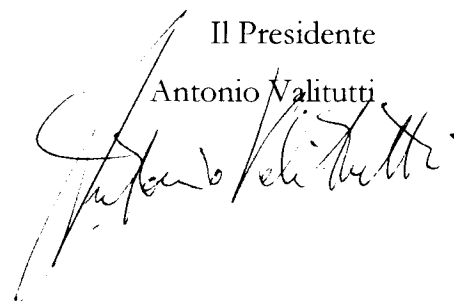 Il Presidente
Antonio Valitutti
Antonio Valitutti